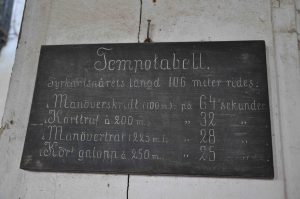 Tempotabell.
Fyrkantsnårets längd 106 meter rides:
i Manöverskridt (100 m): på 64 sekunder
i Korttraf à 200 m: „ 32 „
i Manövertraf à 225 m: „ 28 „
i Kort galopp à 250 m: „ 25 „